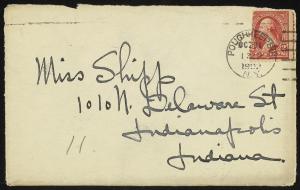 POUGHKEEPSIE
N.Y.
Miss Shipp
1010 N. Delaware St
Indianapolis
Indiana.
11